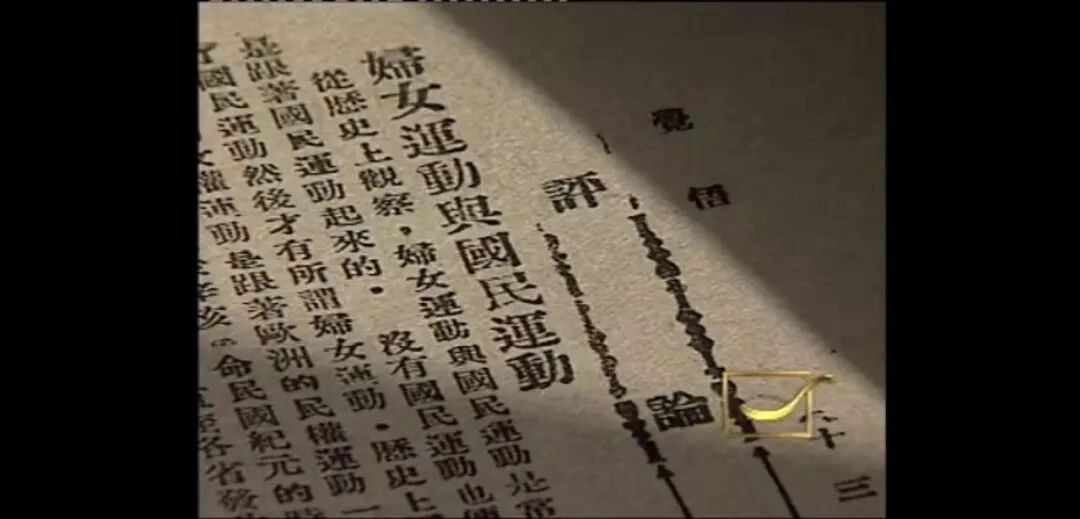 覺悟
十三
評論
婦女運動與國民運動
從歷史上觀察，婦女運動與國民運動是常
是跟著國民運動起來的．沒有國民運動也
國民運動然後才有所謂婦女運動．歷史上
權運動是跟著歐洲的民權運動一
亥 命民國紀元的時
至各省發